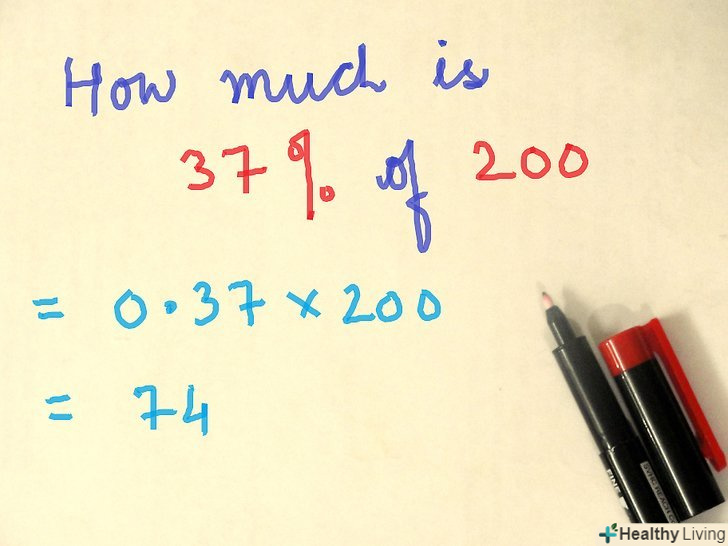 How much is
37% of 200
= 0.37 × 200
= 74
FINE
Healthy Living